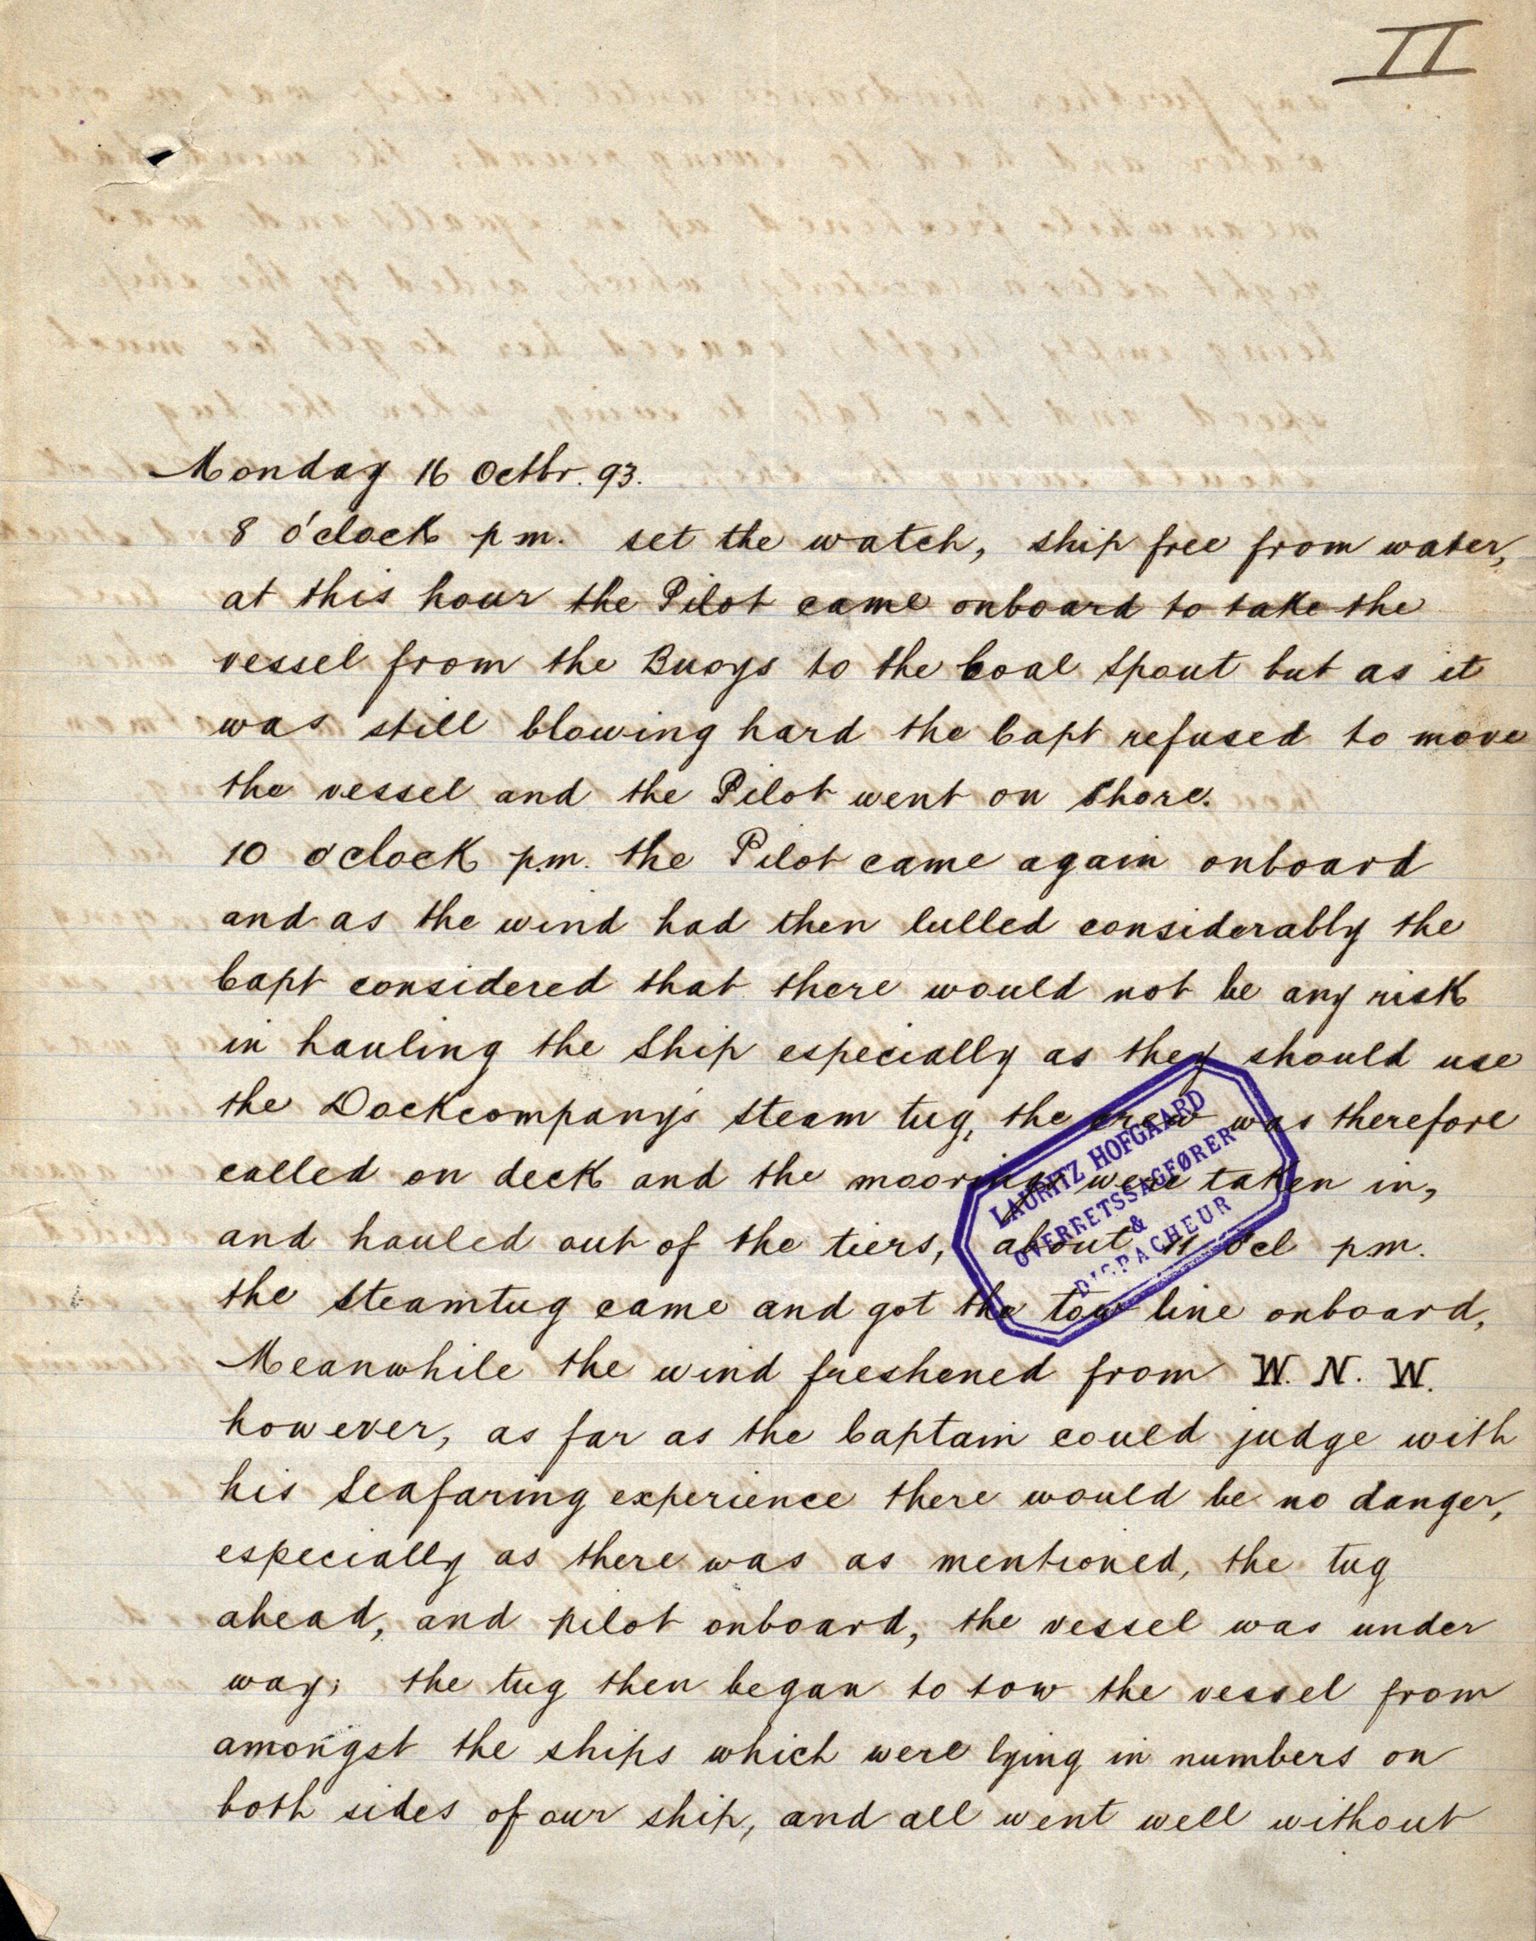 II
Monday 16 Octbr. 93.
8 o'clock pm. set the watch, ship free from water,
at this hour the Pilot came onboard to take the
vessel from the Buoys to the Coal Spout but as it
was still blowing hard the Capt refused to move
the vessel and the Pilot went on Shore.
10 o'clock p.m. the Pilot came again onboard
and as the wind had then lulled considerably the
Capt considered that there would not be any risk
in hauling the Ship especially as they should use
the Dockcompany's steam tug, the crew was therefore
called on deck and the moorings were taken in,
and hauled out of the tiers, about 11 o'cl pm.
the Steamtug came and got the tow line onboard,
Meanwhile the wind freshened from W. N. W.
however, as far as the Captain could judge with
his Seafaring experience there would be no danger,
especially as there was as mentioned, the tug
ahead, and pilot onboard, the vessel was under
way; the tug then began to tow the vessel from
amongst the ships which were lying in numbers on
both sides of our ship, and all went well without
LAURITZ HOFGAARD
OVERRETSSAGFØRER
&
DISPACHEUR